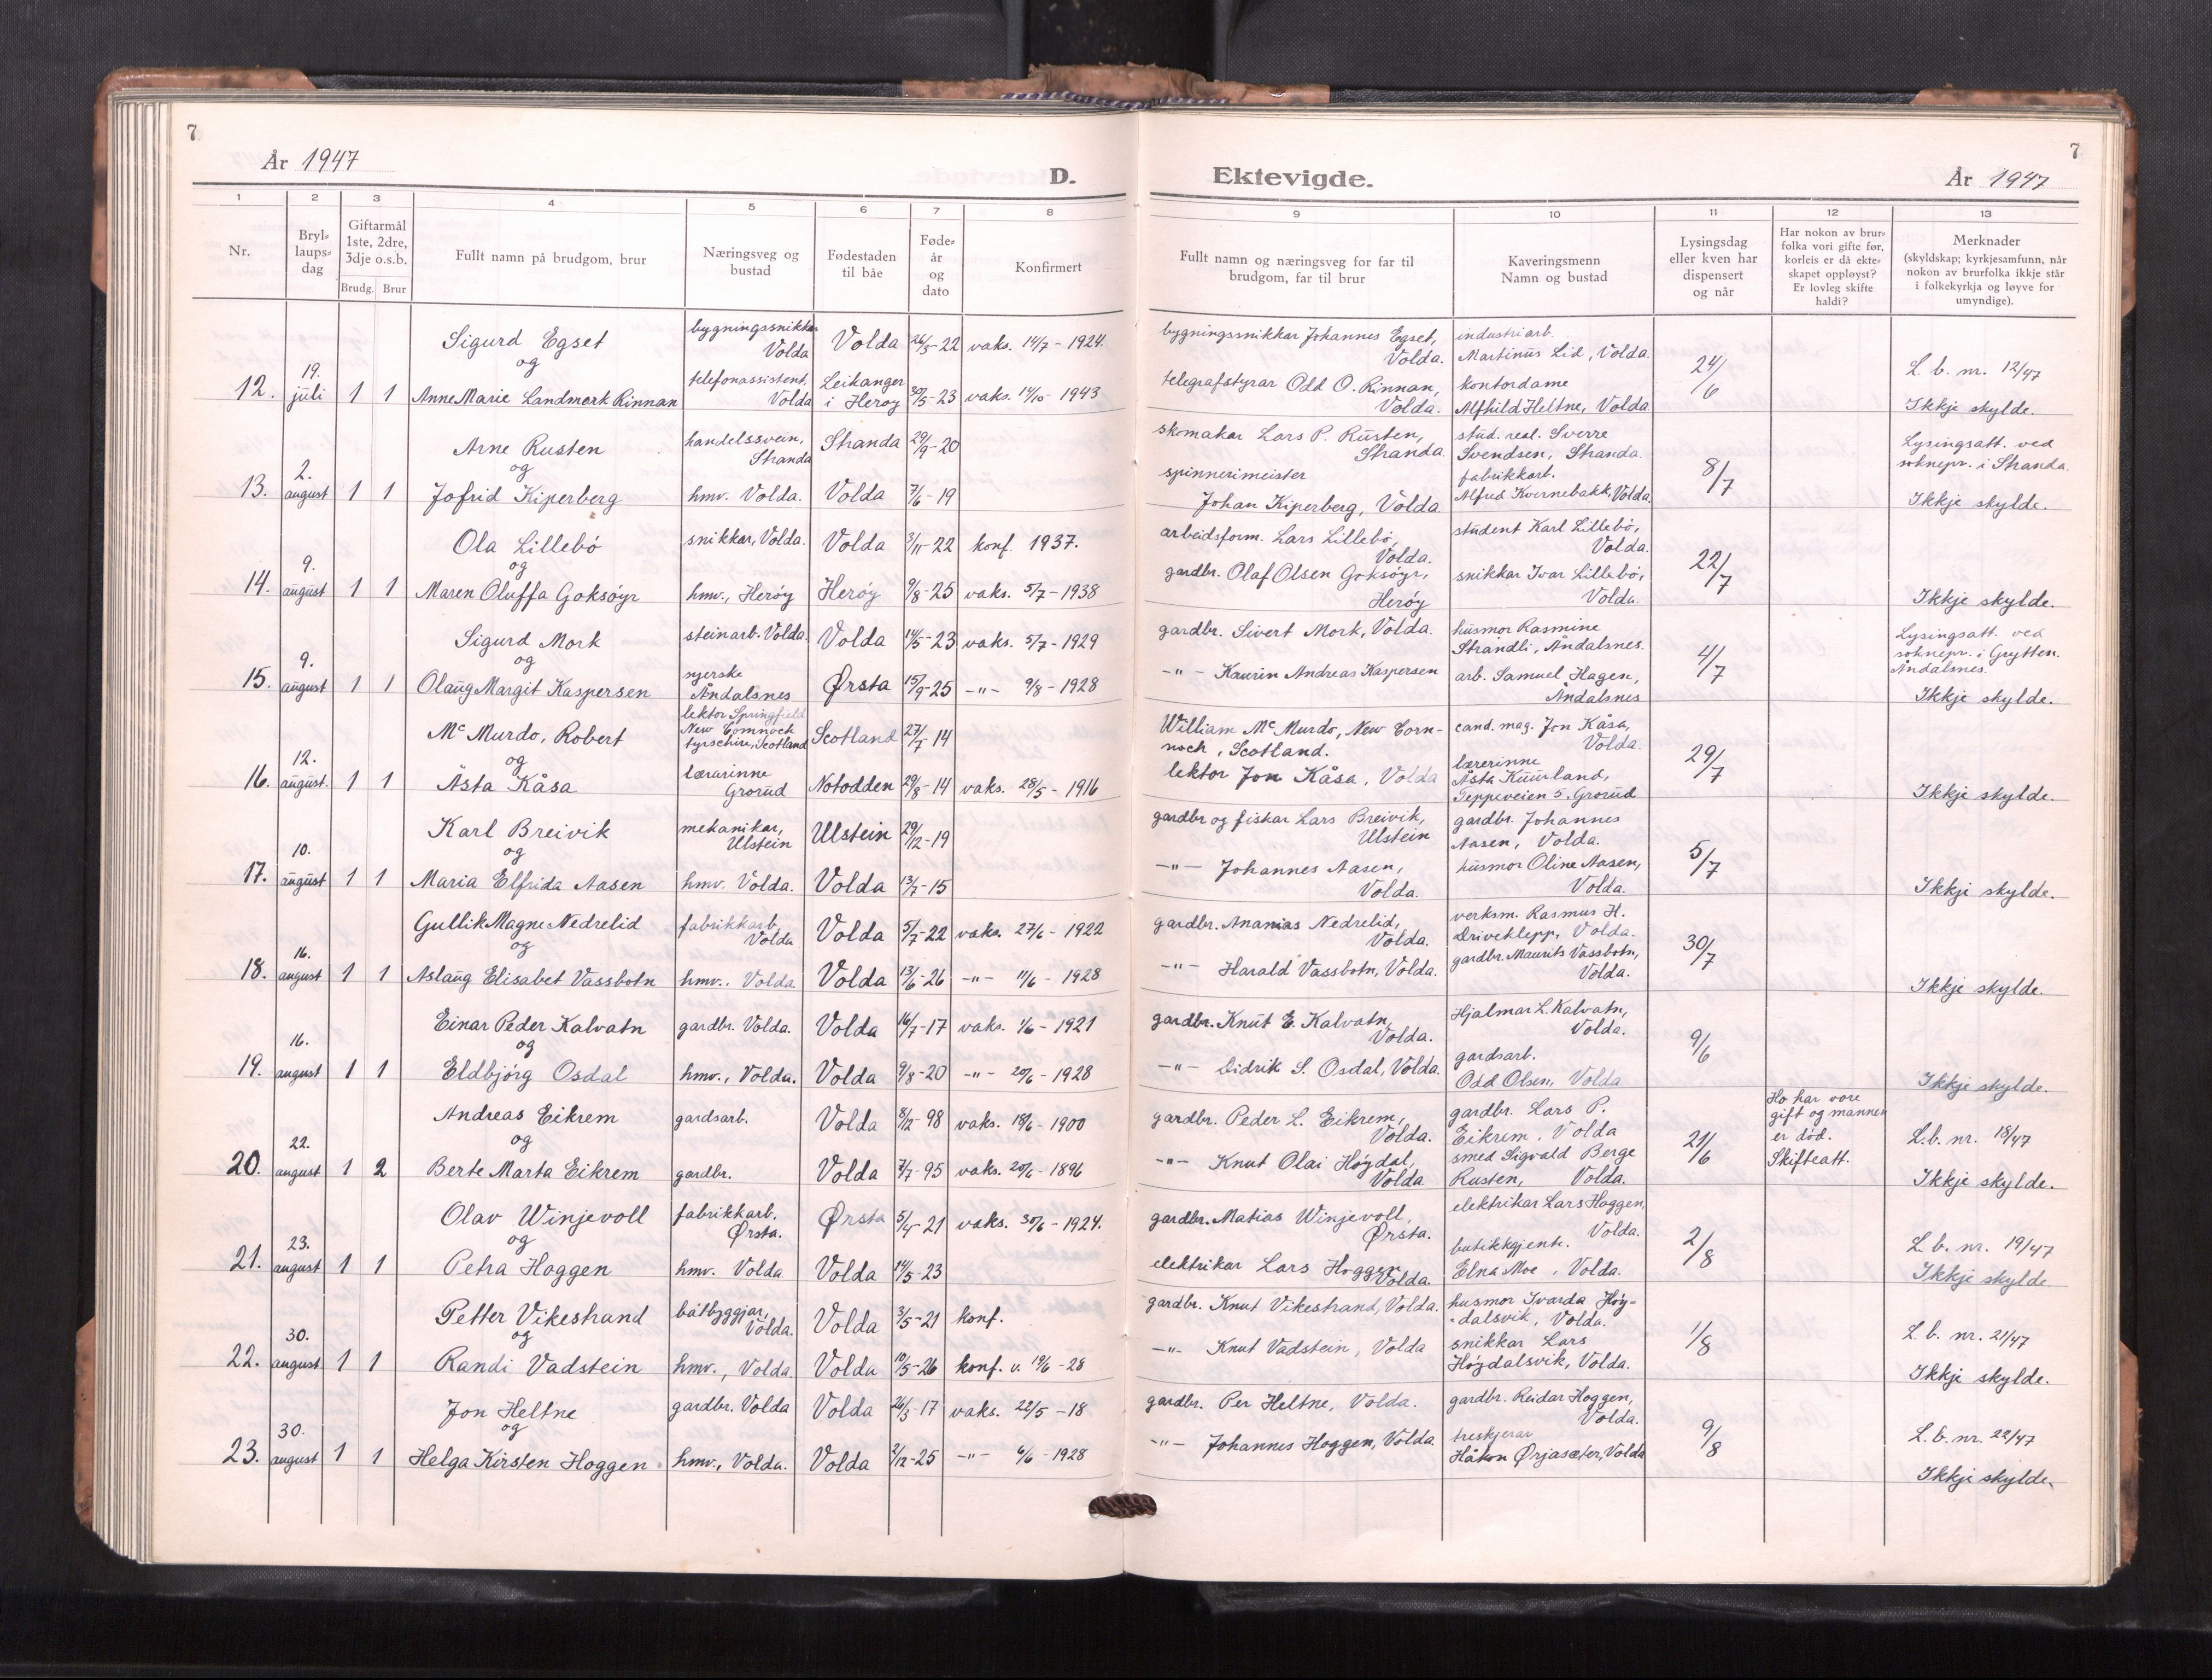 7
År 1947
D.
Ektevigde.
År 1947
7
1 2 3 4 5 6 7 8 9 10 11 12 13
Nr.
Bryl-
laups-
dag
Giftarmål
1ste, 2dre,
3dje o.s.b.
Brudg. Brur
Fullt namn på brudgom, brur
Næringsveg og
bustad
Fødestaden
til båe
Føde-
år
og
dato
Konfirmert
Fullt namn og næringsveg for far til
brudgom, far til brur
Kaveringsmenn
Namn og bustad
Lysingsdag
eller kven har
dispensert
og når
Har nokon av brur-
folka vori gifte før,
korleis er då ekte-
skapet oppløyst?
Er lovleg skifte
haldi?
Merknader
(skyldskap; kyrkjesamfunn, når
nokon av brurfolka ikkje står
i folkekyrkja og løyve for
umyndige).
12.
19.
juli
1 1
Sigurd Egset
og
Anne Marie Landmark Rinnan
bygningssnikkar
Volda
telefonassistent,
Volda
Volda
Leikanger
i Herøy
26/3-22
30/5-23
vaks. 14/7 - 1924.
vaks. 14/10 - 1943
bygningssnikkar Johannes Egset,
Volda.
telegrafstyrar Odd O. Rinnan,
Volda.
industriarb.
Martinus Lid, Volda.
kontordame
Alfhild Heltne, Volda
24/6
L. b. nr. 12/47
Ikkje skylde.
13.
2.
august
1 1
Arne Rusten
og
Jofrid Kiperberg
handelssvein,
Stranda
hmv. Volda.
Stranda
Volda
29/9-20
7/6-19
skomakar Lars P. Rusten,
Stranda.
spinnerimeister
Johan Kiperberg, Volda
stud. real. Sverre
Svendsen, Stranda.
fabrikkarb.
Alfred Kvernebakk, Volda.
8/7
Lysingsatt. ved
soknepr. i Stranda.
Ikkje skylde.
14.
9.
august
1 1
Ola Lillebö
og
Maren Oluffa Goksöyr
snikkar, Volda.
hmv., Heröy
Volda
Heröy
3/11-22
9/8-25
konf. 1937.
vaks. 5/7 - 1938
arbeidsform. Lars Lillebö,
Volda.
gardbr. Olaf Olsen Goksöyr,
Heröy
student Karl Lillebö,
Volda.
snikkar Ivar Lillebö,
Volda.
22/7
Ikkje skylde.
15.
9.
august
1 1
Sigurd Mork
og
Olaug Margit Kaspersen
steinarb. Volda.
syerske
Åndalsnes
Volda
Ørsta
14/5-23
15/9-25
vaks. 5/7 - 1929
-"- 9/8 - 1928
gardbr. Sivert Mork, Volda.
-"- Kaurin Andreas Kaspersen
husmor Rasmine
Strandli, Åndalsnes.
arb. Samuel Hagen,
Åndalsnes
4/7
Lysingsatt. ved
soknepr. i Grytten.
Åndalsnes.
Ikkje skylde.
16.
12.
august.
1 1
Mc Murdo, Robert
og
Åsta Kåsa
lektor Springfield
New Comnock
tyrschire, Scotland
lærarinne
Grorud
Scotland
Notodden
27/7-14
29/8-14
vaks. 28/5 - 1916
William Mc Murdo, New Corn-
noch, Scotland.
lektor Jon Kåsa, Volda
cand. mag. Jon Kåsa,
Volda.
lærerinne
Åsta Kuurland,
Teppeveien 5. Grorud
29/7
Ikkje skylde.
17.
10.
august
1 1
Karl Breivik
og
Maria Elfrida Aasen
mekanikar,
Ulstein
hmv. Volda.
Ulstein
Volda
29/12-19
13/7-15
gardbr og fiskar Lars Breivik,
Ulstein
-"- Johannes Aasen,
Volda.
gardbr. Johannes
Aasen, Volda.
husmor Oline Aasen,
Volda.
5/7
Ikkje skylde.
18.
16.
august
1 1
Gullik Magne Nedrelid
og
Aslaug Elisabet Vassbotn
fabrikkarb,
Volda
hmv., Volda
Volda
Volda
5/7-22
13/6-26
vaks. 27/6 - 1922
-"- 11/6 - 1928
gardbr. Ananias Nedrelid,
Volda.
-"- Harald Vassbotn, Volda.
verksm. Rasmus H.
Driveklepp, Volda.
gardbr. Maurits Vassbotn,
Volda.
30/7
Ikkje skylde.
19.
16.
august
1 1
Einar Peder Kalvatn
og
Eldbjörg Osdal
gardbr. Volda.
hmv., Volda.
Volda
Volda
16/7-17
9/8-20
vaks. 1/6 - 1921
-"- 20/6 - 1928
gardbr. Knut E. Kalvatn,
Volda.
-"- Didrik S. Osdal, Volda.
Hjalmar L. Kalvatn,
Volda.
gardsarb.
Odd Olsen, Volda
9/6
Ikkje skylde.
20.
22.
august
1 2
Andreas Eikrem
og
Berte Marta Eikrem
gardsarb.
gardbr.
Volda
Volda
8/12-98
7/7-95
vaks. 18/6 - 1900
vaks. 20/6 - 1896
gardbr. Peder L. Eikrem,
Volda.
-"- Knut Olai Høydal,
Volda
gardbr. Lars P.
Eikrem, Volda
smed Sigvald Berge
Rusten, Volda.
21/6
Ho har vore
gift og mannen
er död.
Skifteatt.
L.b. nr. 18/47
Ikkje skylde.
21.
23.
august
1 1
Olav Winjevoll
og
Petra Hoggen
fabrikkarb.
Ørsta.
hmv. Volda
Ørsta
Volda
5/4-21
14/5-23
vaks. 30/6 - 1924.
gardbr. Matias Winjevoll,
Ørsta.
elektrikar Lars Hoggen
Volda.
elektrikar Lars Hoggen,
Volda.
butikkgjente.
Elna Moe, Volda.
2/8
L. b. nr. 19/47
Ikkje skylde
22.
30.
august
1 1
Petter Vikestrand
og
Randi Vadstein
båtbyggjar,
Volda.
hmv., Volda
Volda
Volda
3/5-21
10/5-26
konf.
konf. v. 19/6 -28
gardbr. Knut Vikestrand, Volda.
-"- Knut Vadstein, Volda
husmor Ivarda Höy-
-dalsvik, Volda.
snikkar Lars
Höydalsvik, Volda.
1/8
L. b. nr. 21/47
Ikkje skylde.
23.
30.
august
1 1
Jon Heltne
og
Helga Kirsten Hoggen
gardbr. Volda
hmv., Volda.
Volda
Volda
26/3-17
2/12-25
vaks. 22/5 -18
-"- 6/6 - 1928
gardbr. Per Heltne, Volda.
-"- Johannes Hoggen, Volda.
gardbr. Reidar Hoggen,
Volda.
treskjerar
Håkon Ørjasæter, Volda
9/8
L. b. nr. 22/47
Ikkje skylde.